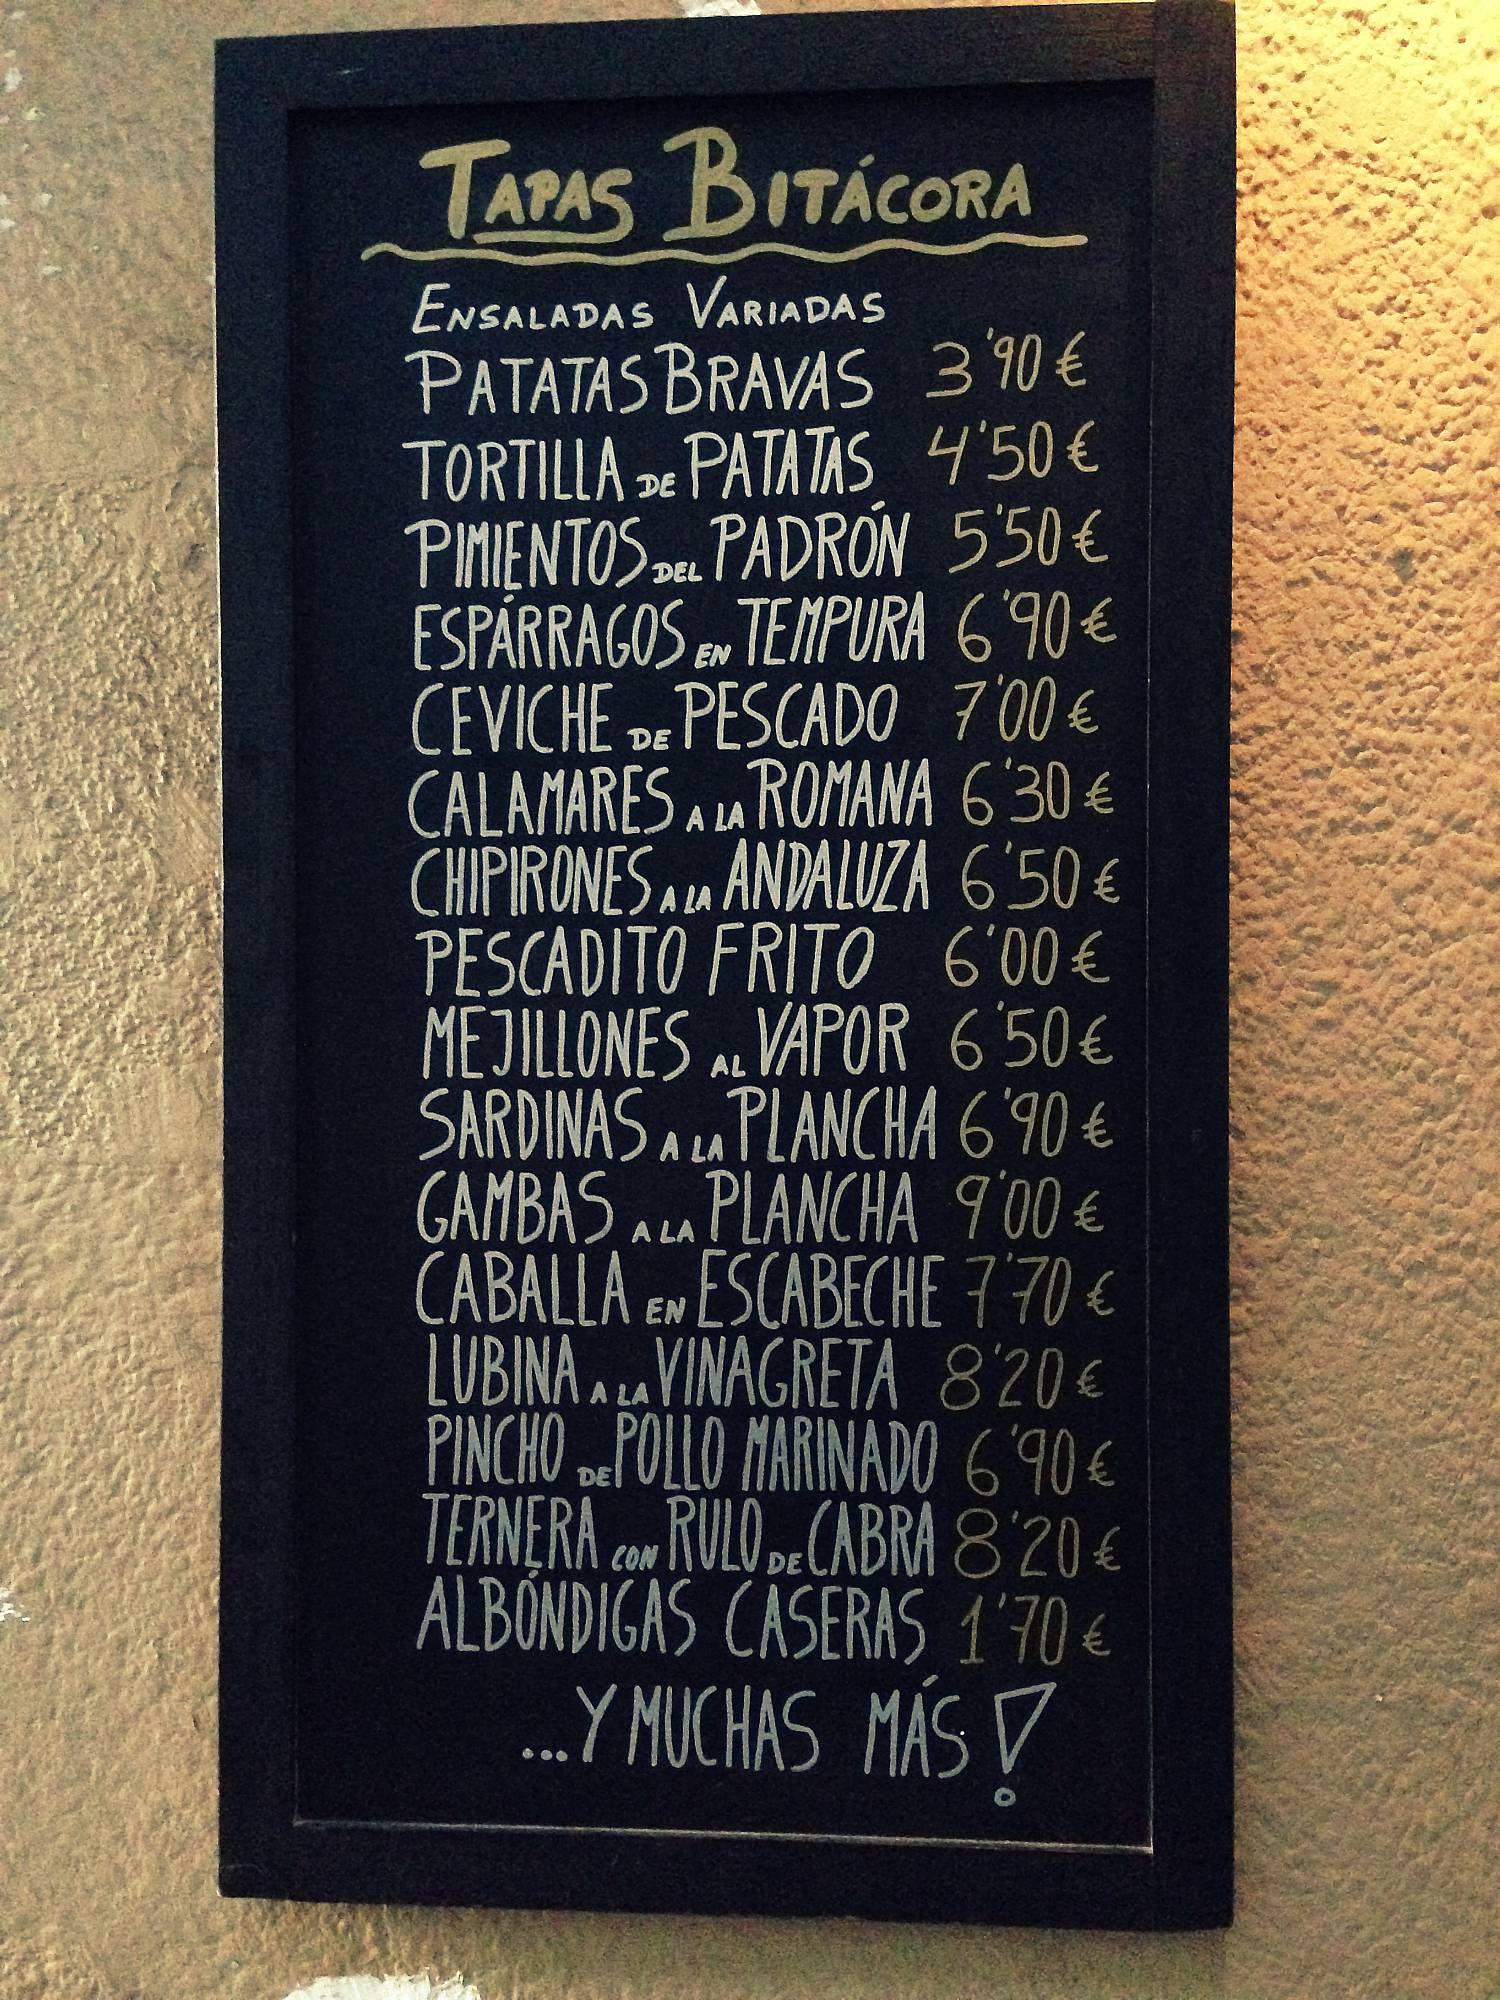 TAPAS BITÁCORA
ENSALADAS VARIADAS
PATATAS BRAVAS 3'90 €
TORTILLA DE PATATAS 4'50 €
PIMIENTOS DEL PADRÓN 5'50 €
ESPÁRRAGOS EN TEMPURA 6'90 €
CEVICHE DE PESCADO 7'00 €
CALAMARES A LA ROMANA 6'30 €
CHIPIRONES A LA ANDALUZA 6'50 €
PESCADITO FRITO 6'00 €
MEJILLONES AL VAPOR 6'50 €
SARDINAS A LA PLANCHA 6'90 €
GAMBAS A LA PLANCHA 9'00 €
CABALLA EN ESCABECHE 7'70 €
LUBINA A LA VINAGRETA 8'20 €
PINCHO DE POLLO MARINADO 6'90 €
TERNERA CON RULO DE CABRA 8'20 €
ALBÓNDIGAS CASERAS 1'70 €
...Y MUCHAS MÁS!